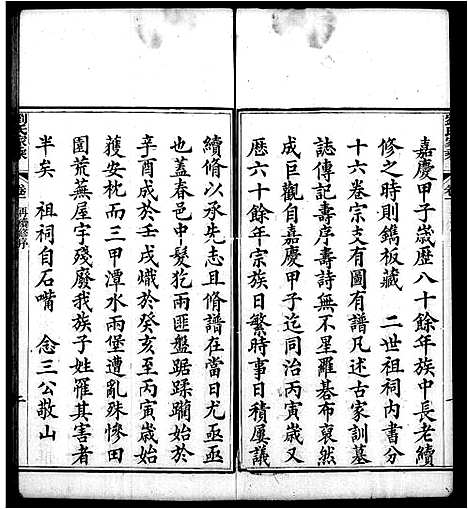 嘉慶甲子歲歷八十餘年族中長老續
修之時則鐫板藏　二世祖祠內書分
十六卷宗支有圖有譜凡述古家訓墓
誌傳記壽序壽詩無不星羅碁布裒然
成巨觀自嘉慶甲子迄同治丙寅歲又
歷六十餘年宗族日繁時事日積屢議
續脩以承先志且脩譜在當日尤亟亟
也蓋春邑中髮犯兩匪盤踞蹂躪始於
辛酉成於壬戌熾於癸亥至丙寅歲始
獲安枕而三甲潭水兩堡遭亂殊慘田
園荒蕪屋宇殘廢我族子姓罹其害者
半矣　祖祠自石嘴　念三公敬山
劉氏家乘　卷一　再續修序